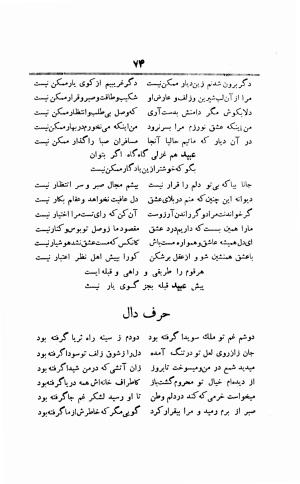 ۷۴
دگر برون شدنم زین دیار ممکن نیست دگر غریبیم از کوی یار ممکن نیست
مرا از آن لب شیرین و زلف و عارض او شکیب و طاقت و صبر و قرار ممکن نیست
دلا بکوش مگر دامنش بدست آری که وصل بی طلب و انتظار ممکن نیست
من اینکه عشق نورزم مرا بسر نرود من اینکه می نخورم در بهار ممکن نیست
در آن دیار که مائیم حالیا آنجا مسافران صبا را گذار ممکن نیست
عبید هم غزلی گاه گاه اگر بتوان
بگو که خوشتر ازین یادگار ممکن نیست
جانا بیا که بی تو دلم را قرار نیست بیشم مجال صبر و سر انتظار نیست
دیوانه این چنین که منم در بلای عشق دل عافیت نخواهد و عقلم بکار نیست
گر خواندنت مراد و گر راندن آرزوست آن کن که رای تست مرا اختیار نیست
مارا همین بست که داریم درد عشق مقصود ما ز وصل تو بوس و کنار نیست
ای دل همیشه عاشق و همواره مست باش کانکس که مست عشق نشد هوشیار نیست
با عشق همنشین شو و از عقل برشکن کورا بپیش اهل نظر اعتبار نیست
هر قوم را طریقی و راهی و قبله ایست
پیش عبید قبله بجز کوی یار نیست
حرف دال
دوشم غم تو ملک سویدا گرفته بود دودم ز سینه راه ثریا گرفته بود
جان زار روی لعل تو در تنگ آمده دل را ز شوق زلف تو سودا گرفته بود
میدید شمع در من و میسوخت تا بروز زان آتشی که در من شیدا گرفته بود
از دیده ام خیال تو محروم گشت باز کاطراف خانه اش همه دریا گرفته بود
میخواست خرمی که کند در دلم وطن تا او رسید لشکر غم جا گرفته بود
صبر از برم رمید و مرا بیقرار کرد گوئی مگر که خاطرش از ما گرفته بود